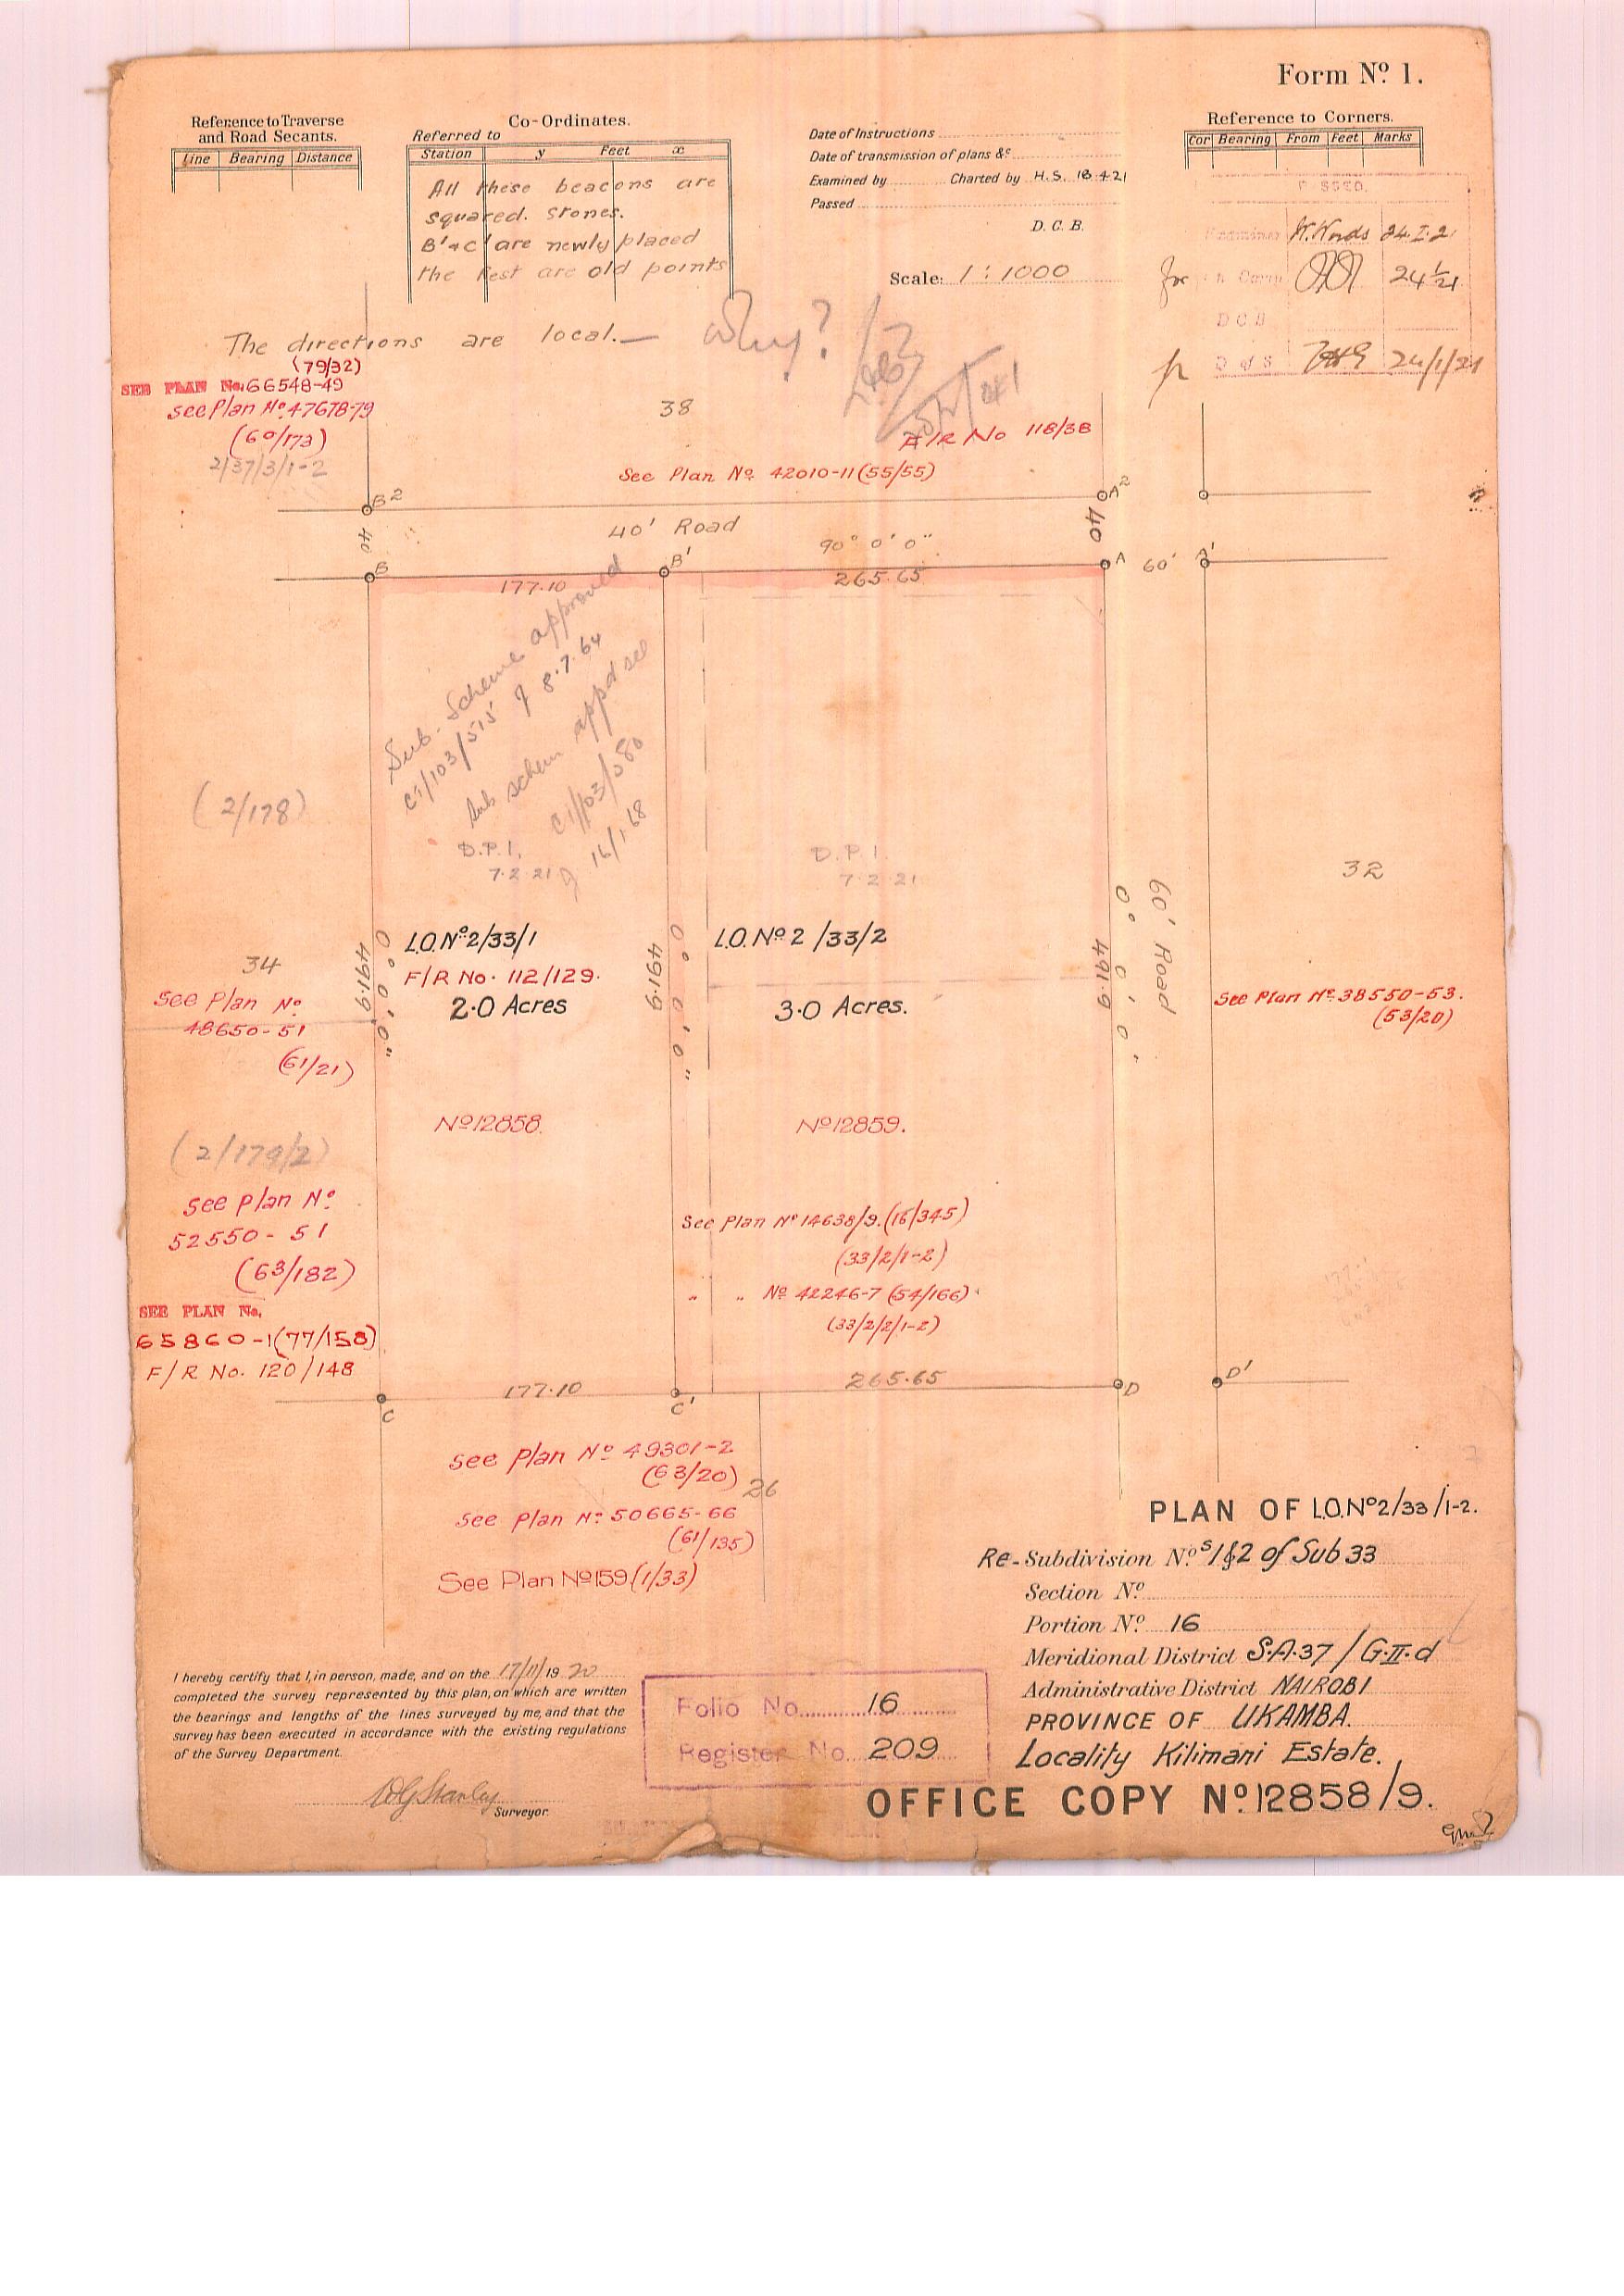 Form Nº 1.
Reference to Traverse
and Road Secants.
Line Bearing Distance
Co-Ordinates.
Referred to
Station y Feet x
All these beacons are
squared. stones.
B'&c' are newly placed
the rest are old points
Date of Instructions
Date of transmission of plans &c
Examined by Charted by H.S. 18.4.21
Passed
D. C. B.
Scale: 1 : 1000
Reference to Corners.
Cor Bearing From Feet Marks
24.I.21
for 24 1/21
D C B
D of S 24/1/21
The directions are local.— Why?
(79/32)
SEE PLAN No. 66548-49
see Plan Nº 47678-79
(60/173)
2/37/3/1-2
38
F/R No 118/38
See Plan Nº 42010-11 (55/55)
B2
A2
40
40' Road
40
90° 0' 0"
B
B'
A
60'
A'
177.10
265.65
Sub-Scheme approved
C1/103/515 of 8.7.64
Sub schem appd see
of 16/1/68
(2/178)
D.P.I.
7.2.21
D.P.I.
7.2.21
32
L.O. Nº 2/33/1
L.O. Nº 2/33/2
F/R No. 112/129.
2.0 Acres
3.0 Acres.
491.9
0° 0' 0"
491.9
0° 0' 0"
491.9
0° 0' 0"
60' Road
34
See Plan Nº
48650-51
(61/21)
See Plan Nº 38550-53.
(53/20)
Nº 12858.
Nº 12859.
(2/179/2)
see Plan Nº
52550-51
(63/182)
SEE PLAN No.
65860-1(77/158)
F/R No. 120/148
See Plan Nº 14638/9.(16/345)
(33/2/1-2)
" " Nº 42246-7 (54/166)
(33/2/2/1-2)
177.10
265.65
C
C'
D
D'
see Plan Nº 49301-2
(63/20)
26
see Plan Nº 50665-66
(61/135)
See Plan Nº 159 (1/33)
PLAN OF L.O. Nº 2/33/1-2.
Re-Subdivision Nº s 1 & 2 of Sub 33
Section Nº
Portion Nº 16
Meridional District S.A.37 / G.II.d
Administrative District NAIROBI
PROVINCE OF UKAMBA.
Locality Kilimani Estate.
OFFICE COPY Nº 12858/9.
I hereby certify that I, in person, made, and on the 17/11/1920
completed the survey represented by this plan, on which are written
the bearings and lengths of the lines surveyed by me, and that the
survey has been executed in accordance with the existing regulations
of the Survey Department.
Surveyor.
Folio No. 16
Register No. 209